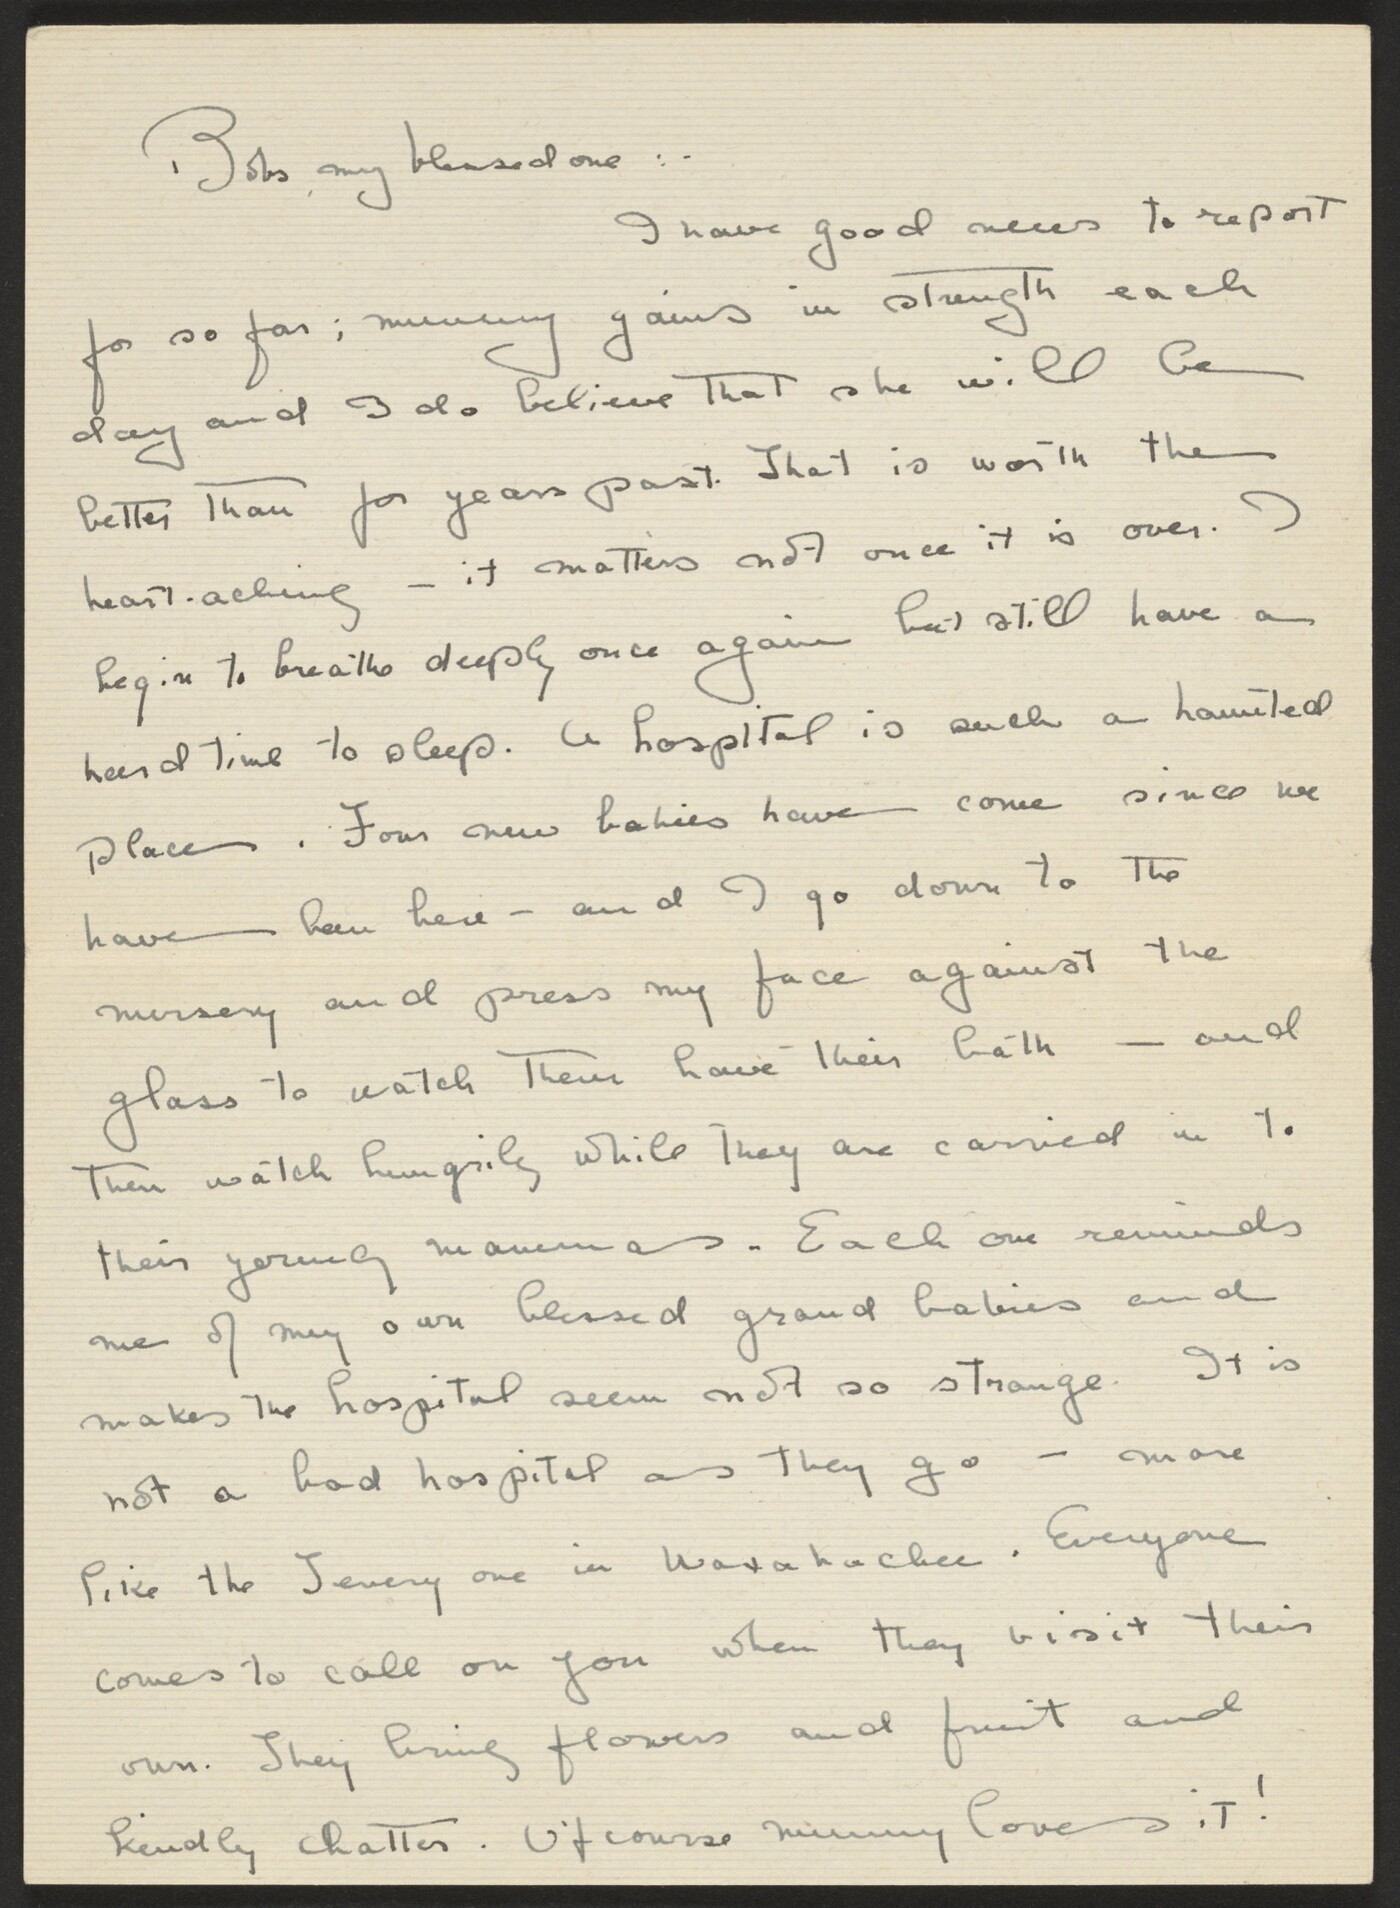 Bobs, my blessed one :-
I have good news to report
for so far; mummy gains in strength each
day and I do believe that she will be
better than for years past. That is worth the
heart-aching – it matters not once it is over. I
begin to breathe deeply once again but still have a
hard time to sleep. A hospital is such a haunted
place. Four new babies have come since we
have been here – and I go down to the
nursery and press my face against the
glass to watch them have their bath – and
then watch hungrily while they are carried in to
their young mammas. Each one reminds
me of my own blessed grand babies and
makes the hospital seem not so strange. It is
not a bad hospital as they go – more
like the one in Waxahachee. Everyone
comes to call on you when they visit their
own. They bring flowers and fruit and
kindly chatter. Of course mummy loves it!